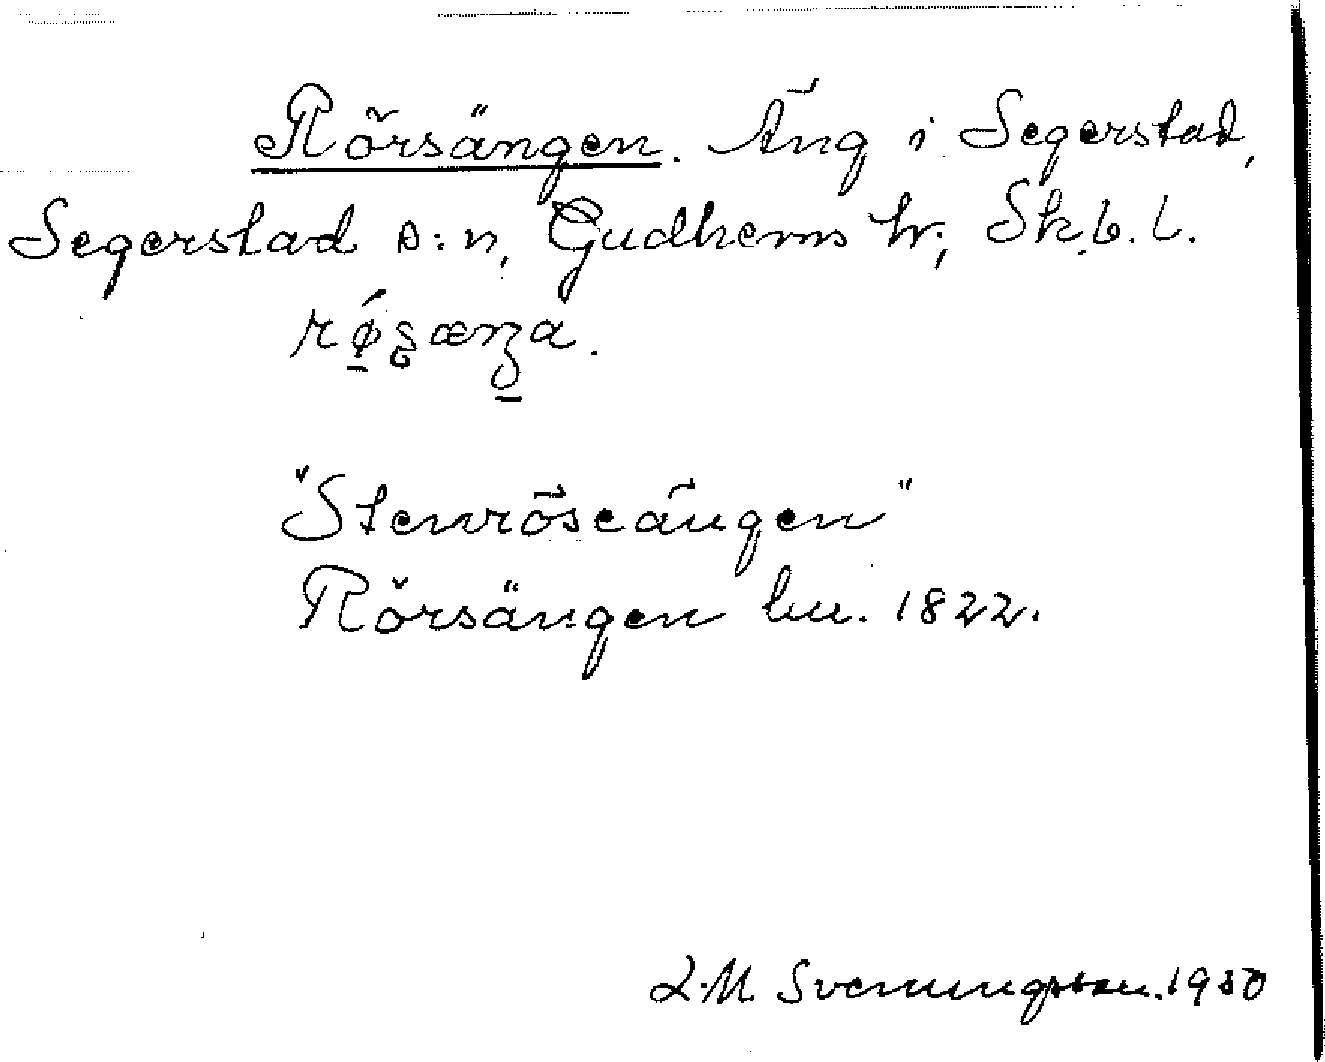 Rörsängen. Äng i Segerstad,
Segerstad s:n, Gudhems hr; Skb. l.
"Stenröseängen"
Rörsängen lm. 1822.
L.M. Svenungsson. 1930